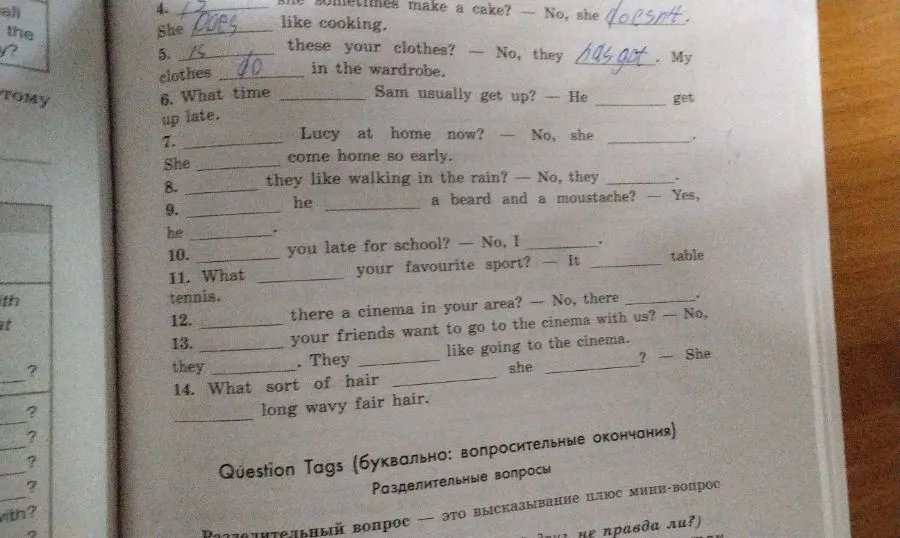 all
the
y?
этому
4. is she sometimes make a cake? — No, she doesn't.
She Does like cooking.
5. is these your clothes? — No, they has got. My
clothes do in the wardrobe.
6. What time ________ Sam usually get up? — He ________ get
up late.
7. ________ Lucy at home now? — No, she ________.
She ________ come home so early.
8. ________ they like walking in the rain? — No, they ________.
9. ________ he ________ a beard and a moustache? — Yes,
he ________.
10. ________ you late for school? — No, I ________.
11. What ________ your favourite sport? — It ________ table
tennis.
12. ________ there a cinema in your area? — No, there ________.
13. ________ your friends want to go to the cinema with us? — No,
they ________. They ________ like going to the cinema.
14. What sort of hair ________ she ________? — She
________ long wavy fair hair.
Question Tags (буквально: вопросительные окончания)
Разделительные вопросы
Разделительный вопрос — это высказывание плюс мини-вопрос
не правда ли?)
?
?
?
?
?
with?
?